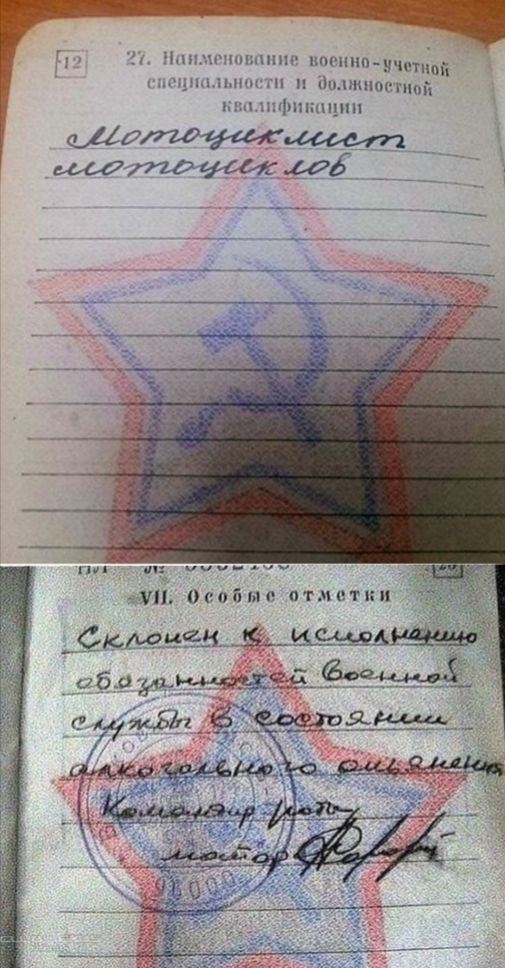 12
27. Наименование военно-учетной
специальности и должностной
квалификации
Мотоциклист
мотоциклов
НЛ №
VII. Особые отметки
Склонен к исполнению
обязанностей военной
службы в состоянии
алкогольного опьянения
Командир роты
майор